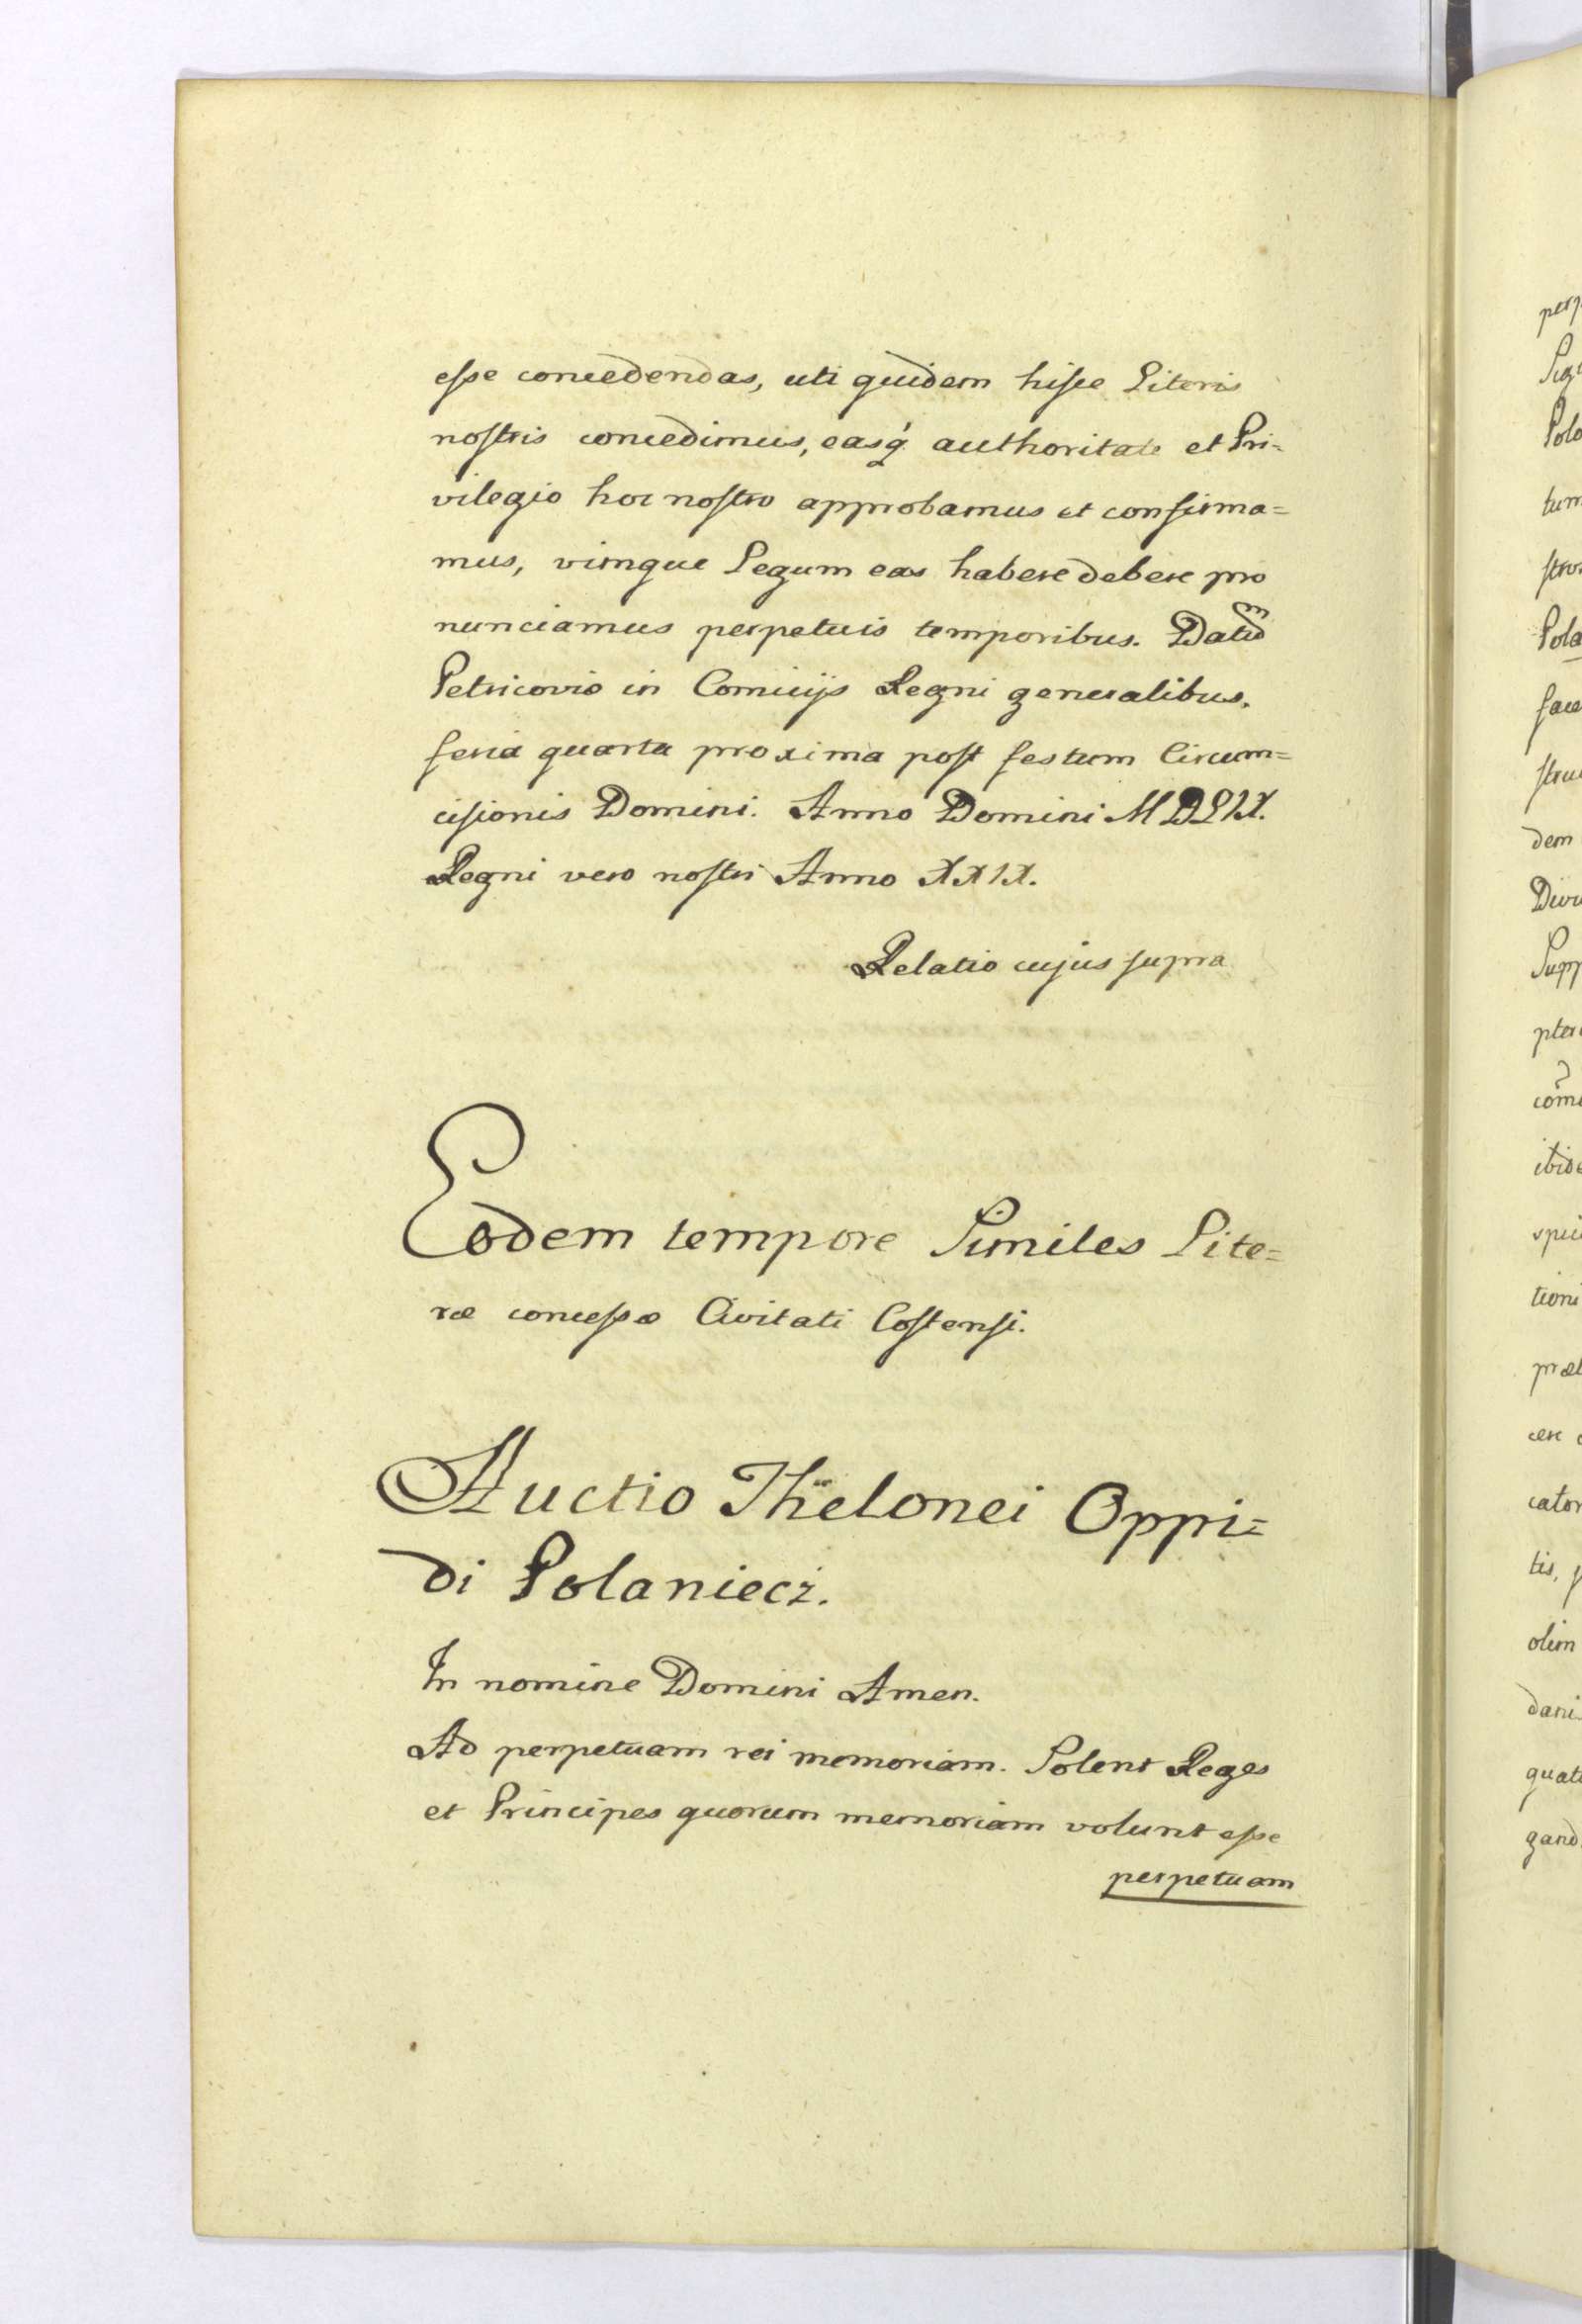 esse concedendas, uti quidem hisce Literis
nostris concedimus, easq́ authoritate et Pri=
vilegio hoc nostro approbamus et confirma=
mus, vimque Legum eas habere debere pro
nunciamus perpetuis temporibus. Datum
Petricoviæ in Comicijs Regni generalibus.
feria quarta proxima post festum Circum=
cisionis Domini. Anno Domini MDLIX.
Regni vero nostri Anno XXIX.
Relatio cujus supra
Eodem tempore Similes Lite=
ræ concessæ Civitati Costensi.
Auctio Thelonei Oppi=
di Polaniecz.
In nomine Domini Amen.
Ad perpetuam rei memoriam. Solent Reges
et Principes quorum memoriam volunt esse
perpetuam
Polo
tum
Pola
face
dem
Supp
tioni
cator
tis,
olim
dani
quat
gand